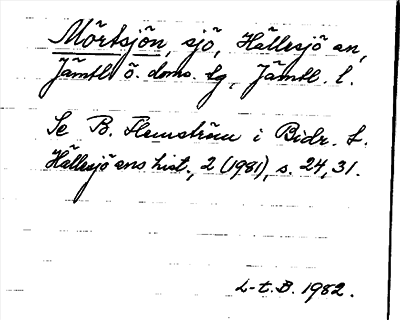 Mörtsjön, sjö, Hällesjö sn,
Jämtl. ö. doms. tg, Jämtl. l.
Se B. Flemström i Bidr. t.
Hällesjö sns hist., 2 (1981), s. 24, 31.
L-t. B. 1982.